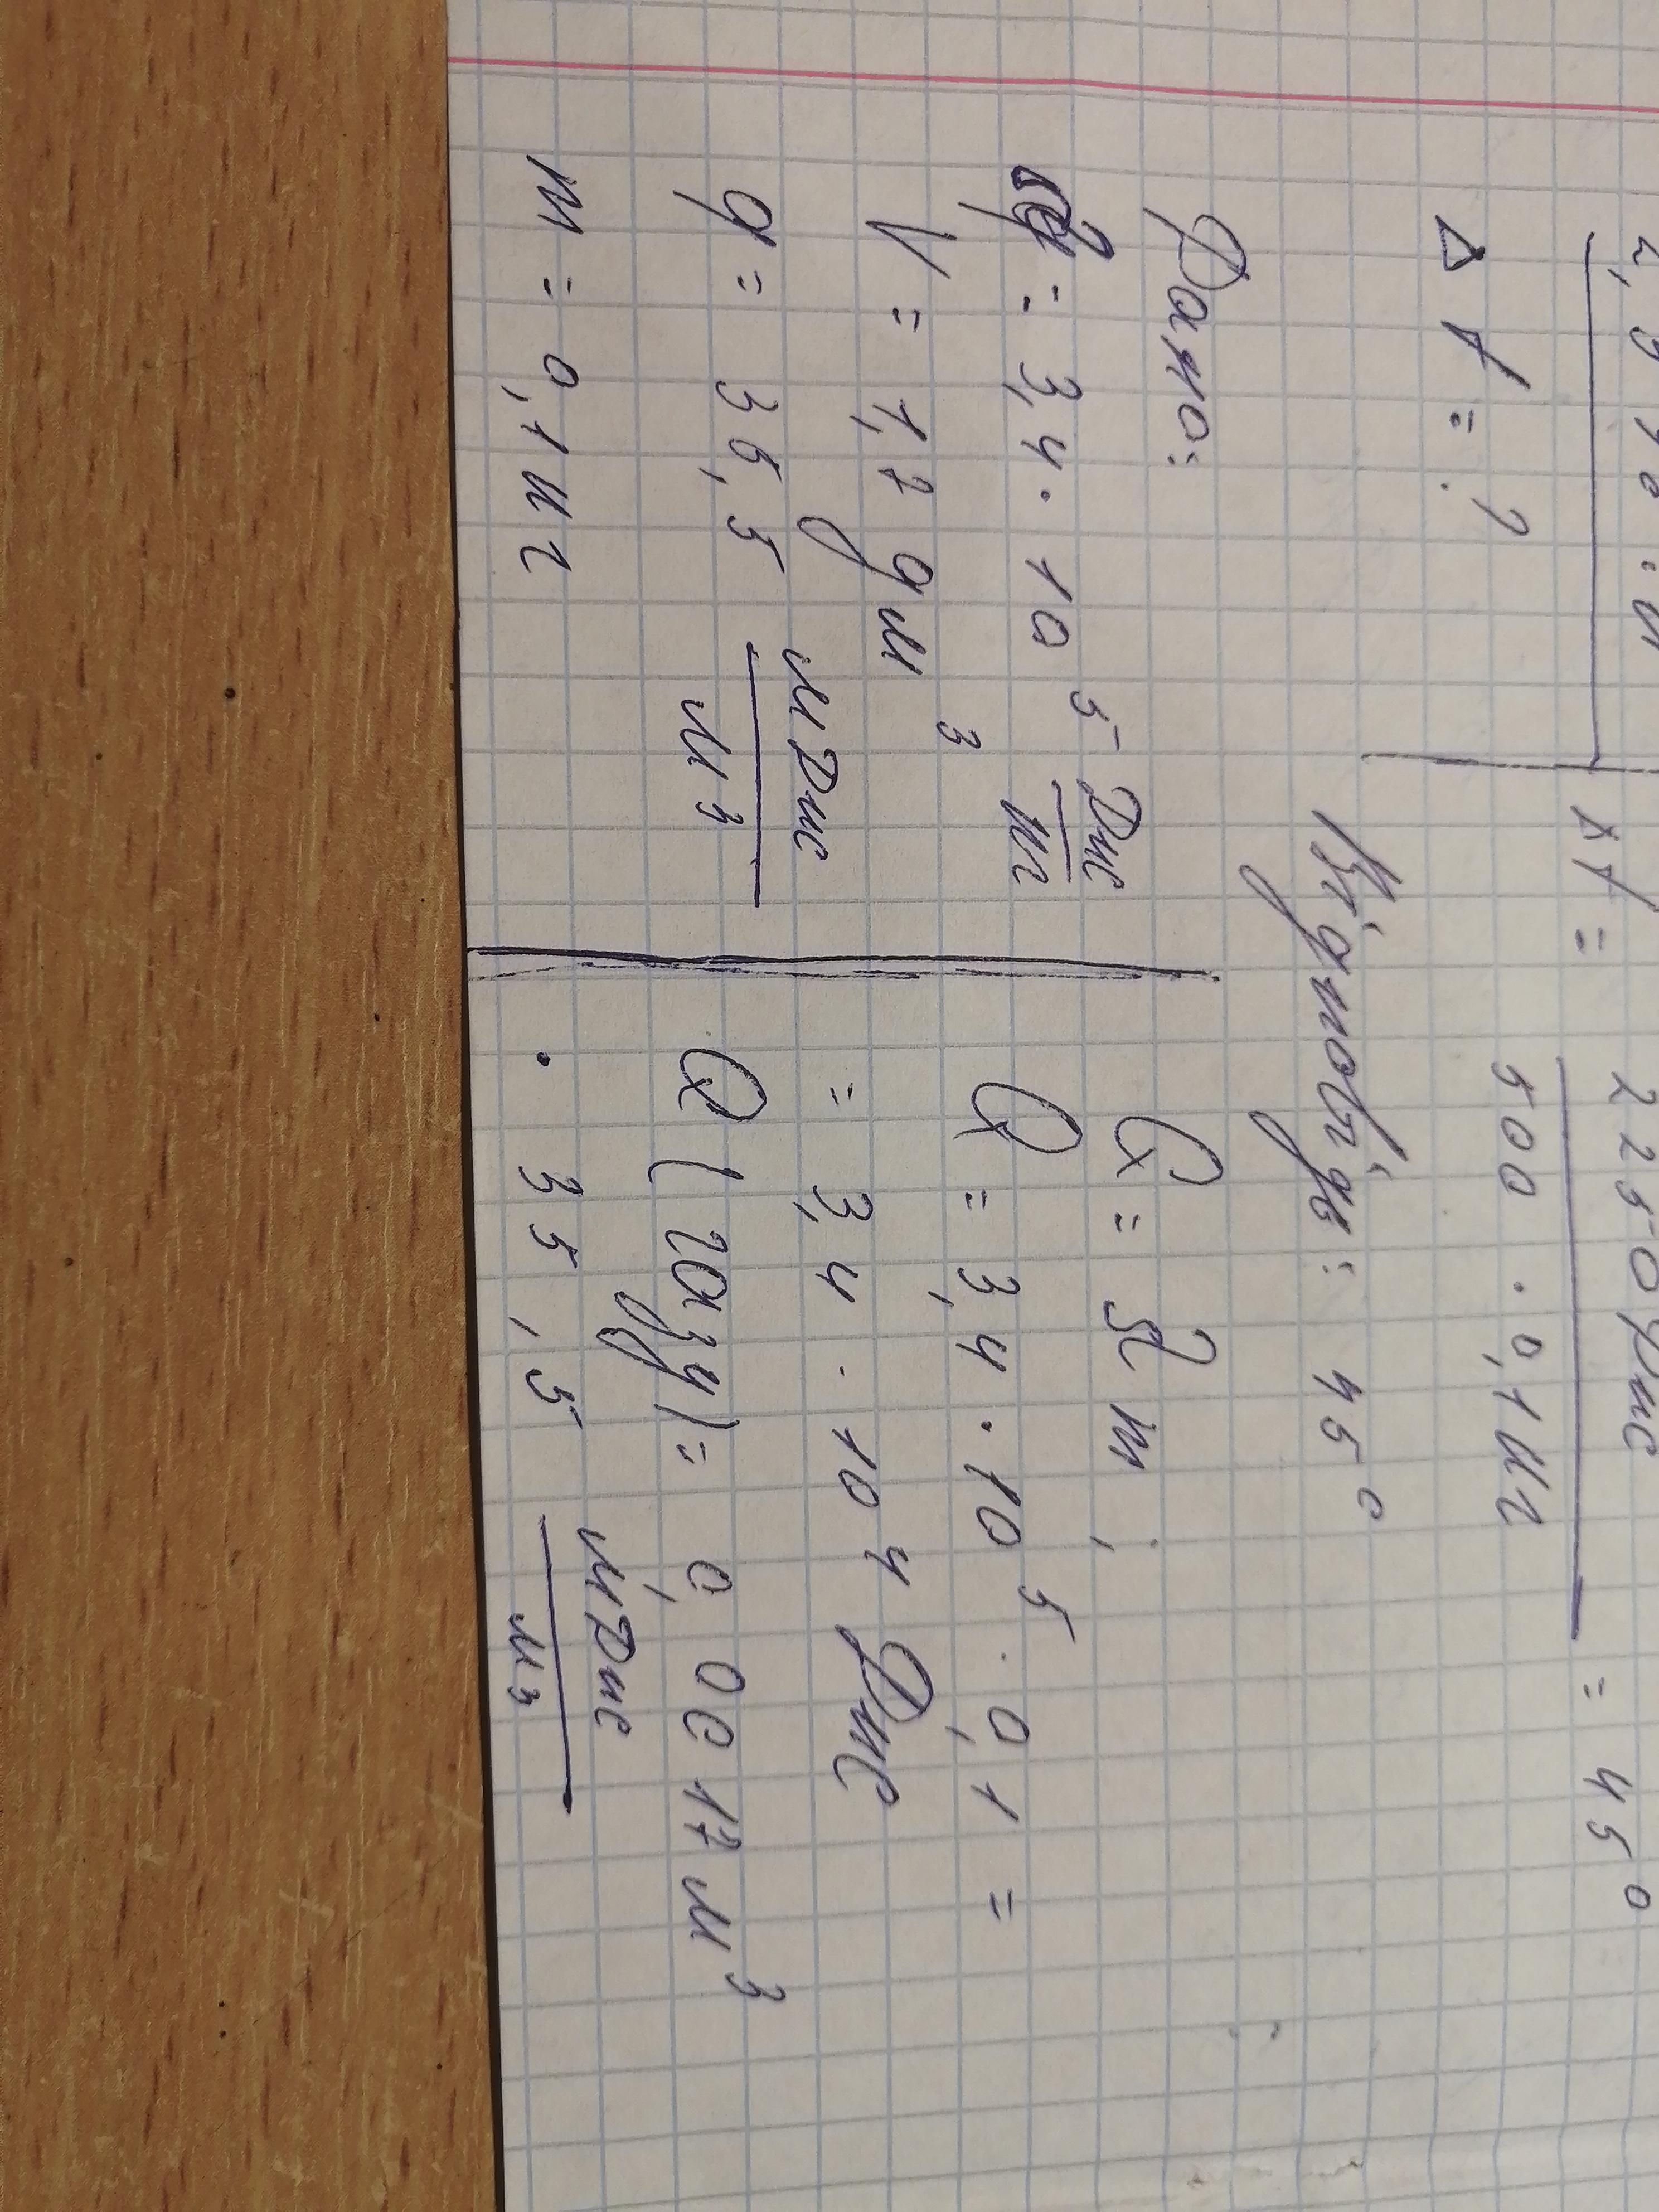 Δt = ?
Δt =
2250 Дж
500 · 0,1 кг
= 45°
Відповідь: 45°
Дано:
λ = 3,4 · 10⁵ Дж/кг
V = 1,7 дм³
q = 35,5 МДж/м³
m = 0,1 кг
Q = λm ;
Q = 3,4 · 10⁵ · 0,1 =
= 3,4 · 10⁴ Дж
Q (газу) = 0,0017 м³
· 35,5 МДж/м³